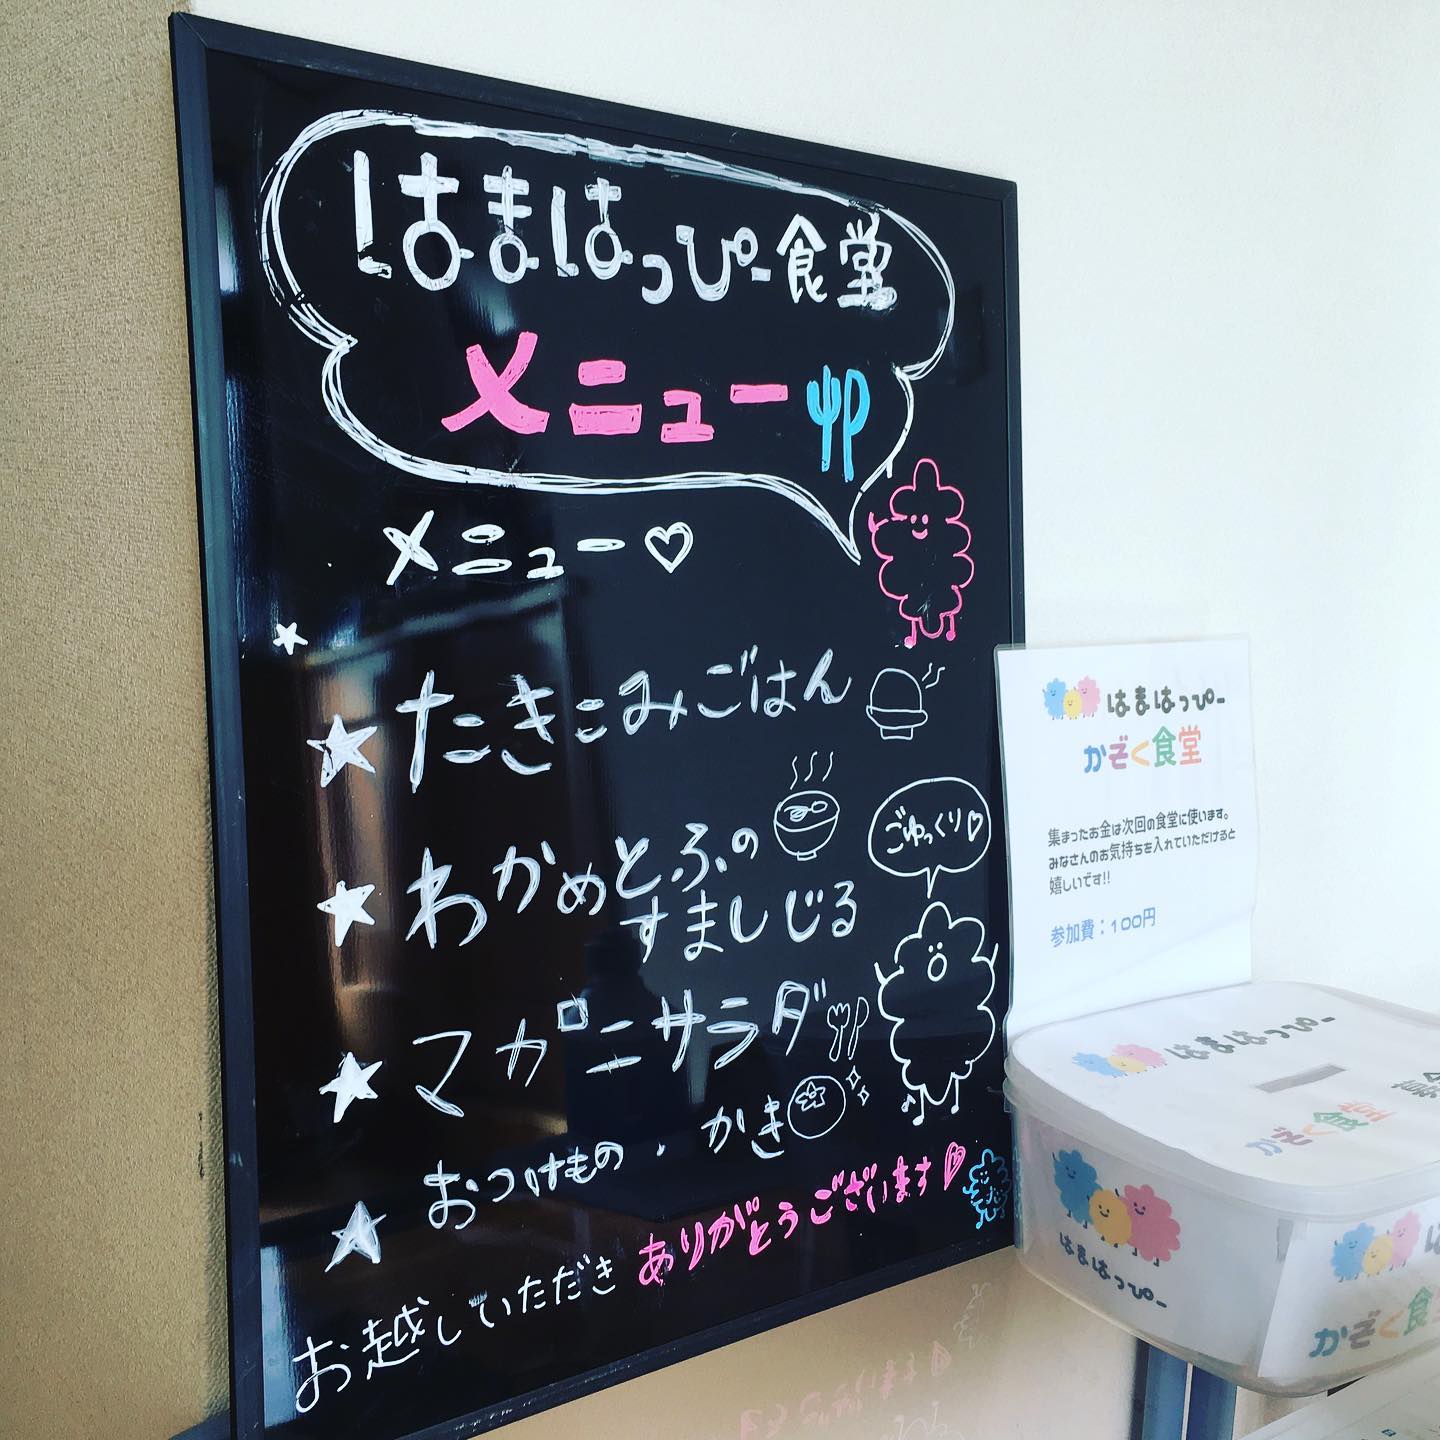 はまはっぴー食堂
メニュー
メニュー♡
★ たきこみごはん
★ わかめとふの
すましじる
ごゆっくり♡
★ マカロニサラダ
★ おつけもの・かき
お越しいただき ありがとうございます♡
はまはっぴー
かぞく食堂
集まったお金は次回の食堂に使います。
みなさんのお気持ちを入れていただけると
嬉しいです!!
参加費：100円
はまはっぴー
かぞく食堂
はまはっぴー
かぞく食堂